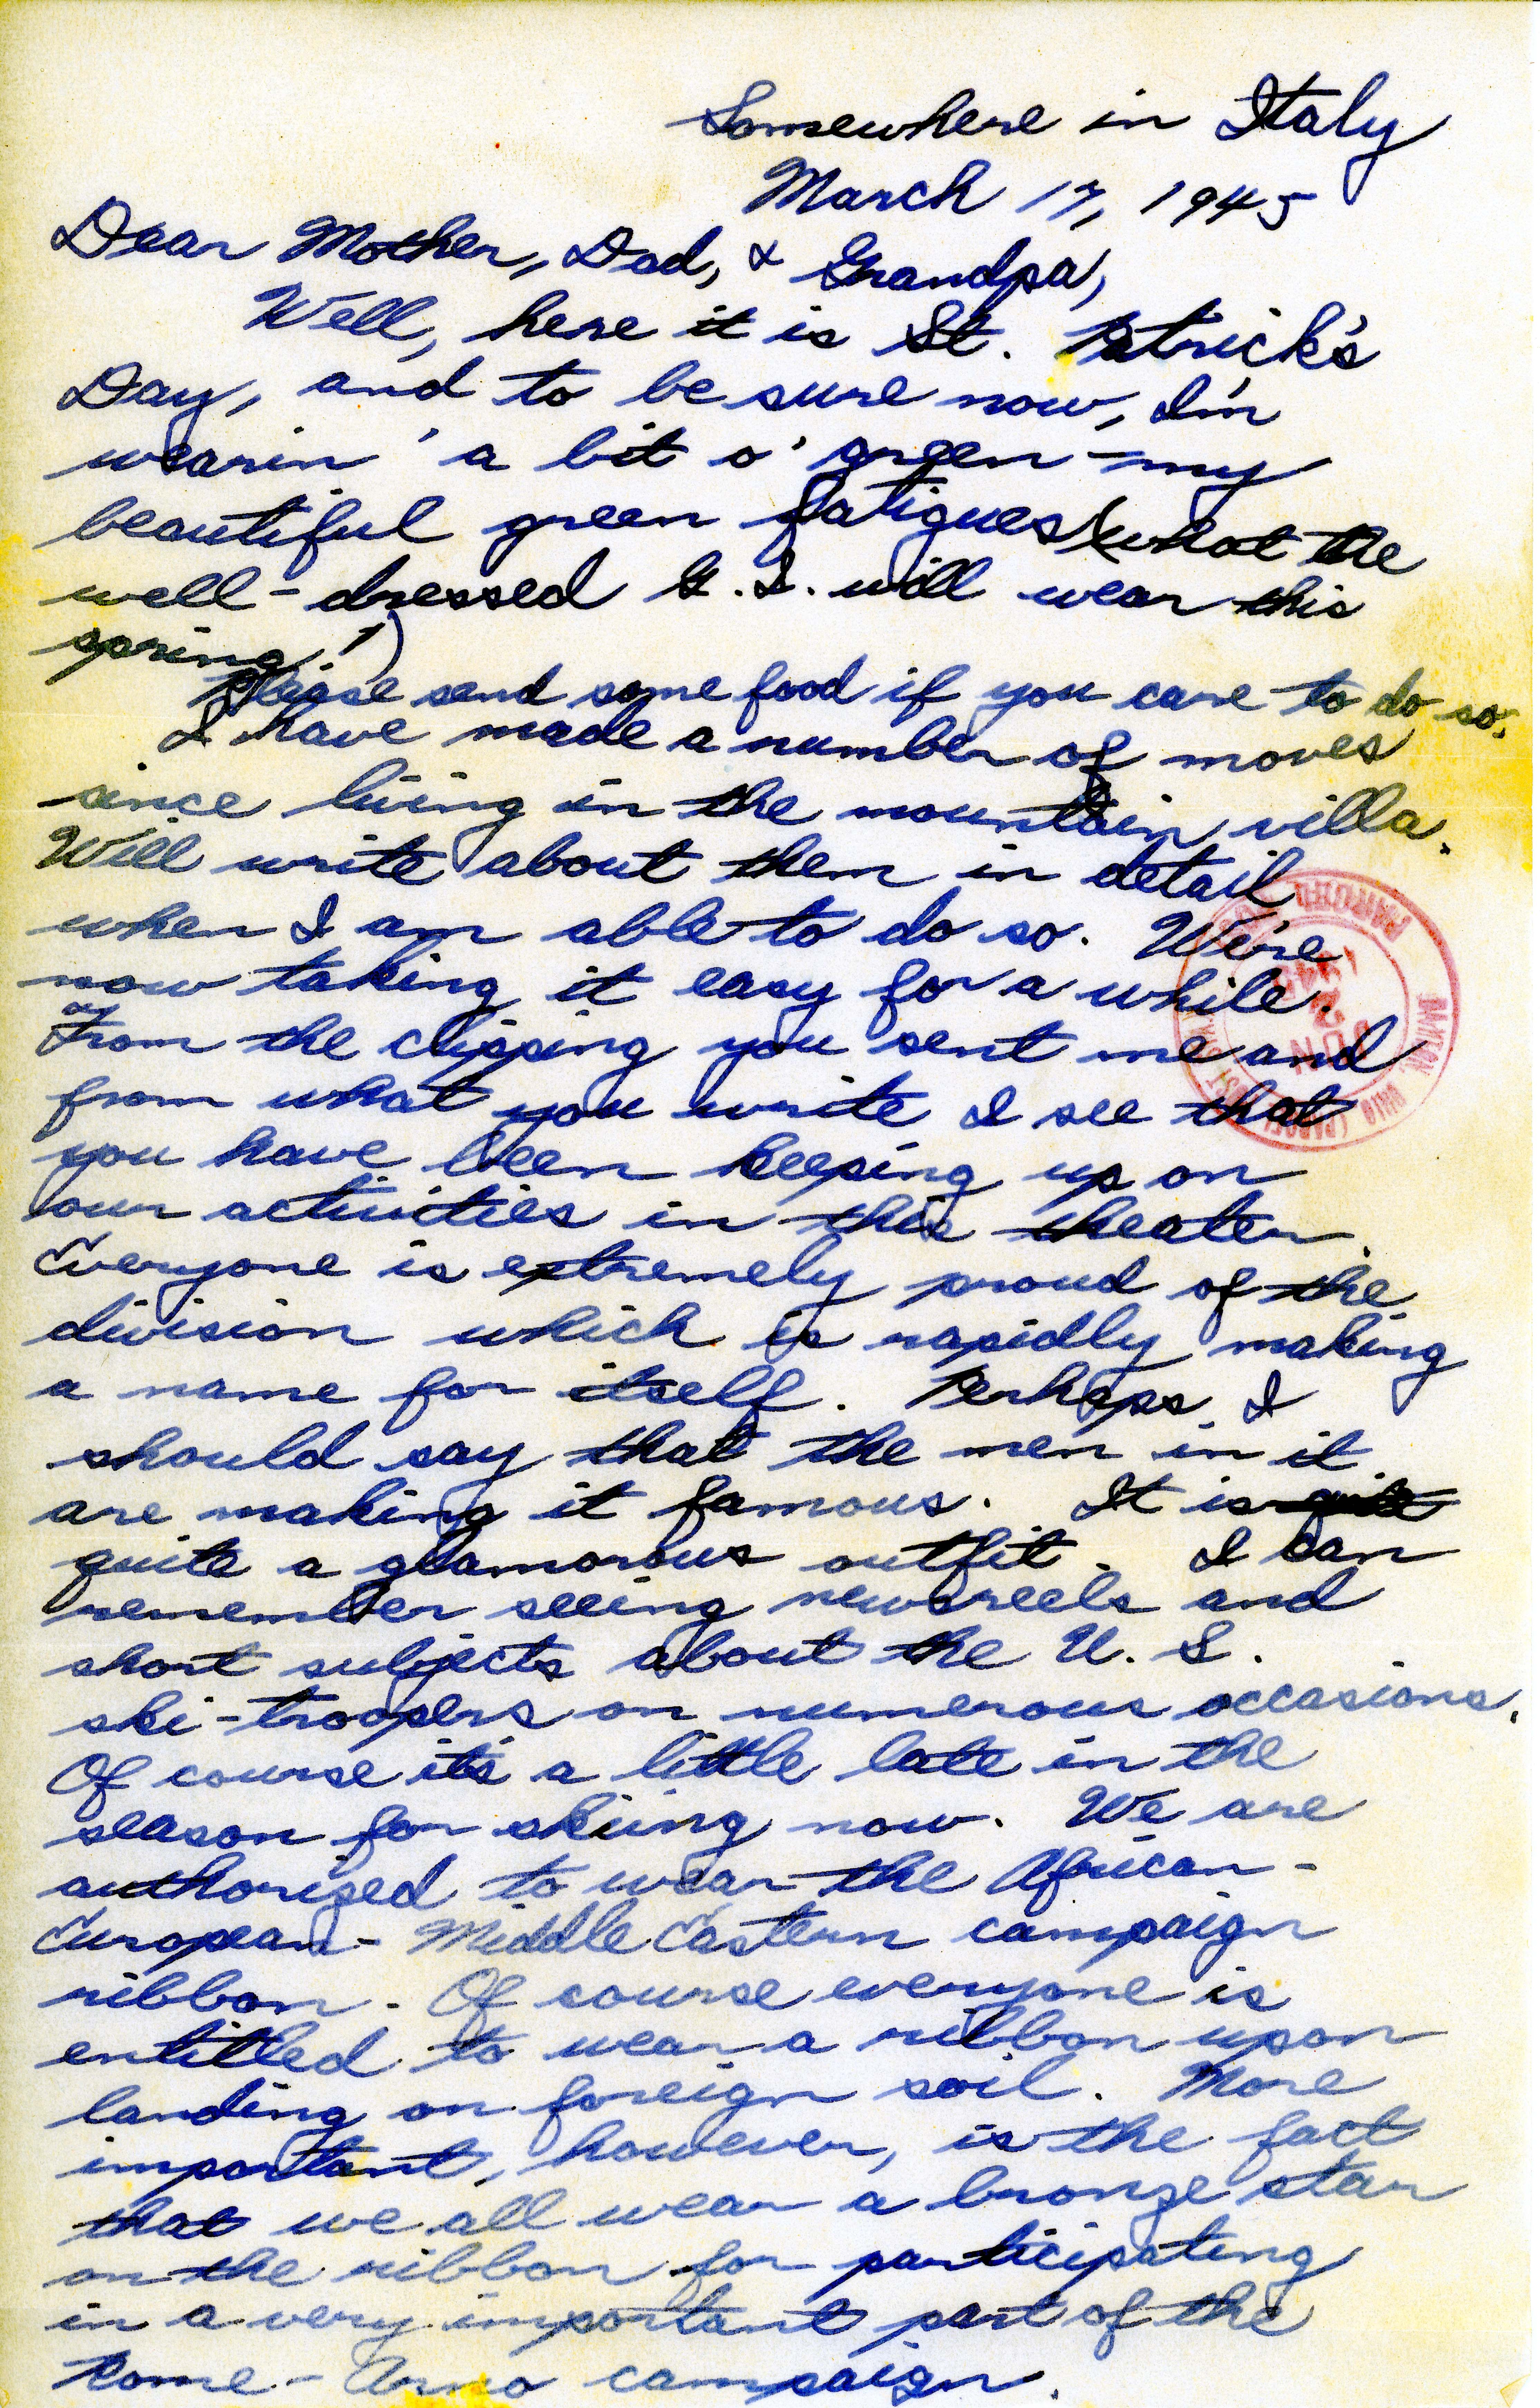 Somewhere in Italy
March 17, 1945
Dear Mother, Dad, & Grandpa,
Well, here it is St. Patrick's
Day, and to be sure now, I'm
wearin' a bit o' green - my
beautiful green fatigues (what the
well-dressed G.I. will wear this
spring!)
Please send some food if you care to do so.
I have made a number of moves
since living in the mountain villa.
Will write about them in detail
when I am able to do so. We're
now taking it easy for a while.
From the clipping you sent me and
from what you write I see that
you have been keeping up on
our activities in this theater.
Everyone is extremely proud of the
division which is rapidly making
a name for itself. Perhaps I
should say that the men in it
are making it famous. It is quite
quite a glamorous outfit. I can
remember seeing newsreels and
short subjects about the U. S.
ski-troopers on numerous occasions.
Of course it's a little late in the
season for skiing now. We are
authorized to wear the African-
European-Middle Eastern campaign
ribbon. Of course everyone is
entitled to wear a ribbon upon
landing on foreign soil. More
important, however, is the fact
that we all wear a bronze star
on the ribbon for participating
in a very important part of the
Rome-Arno campaign.